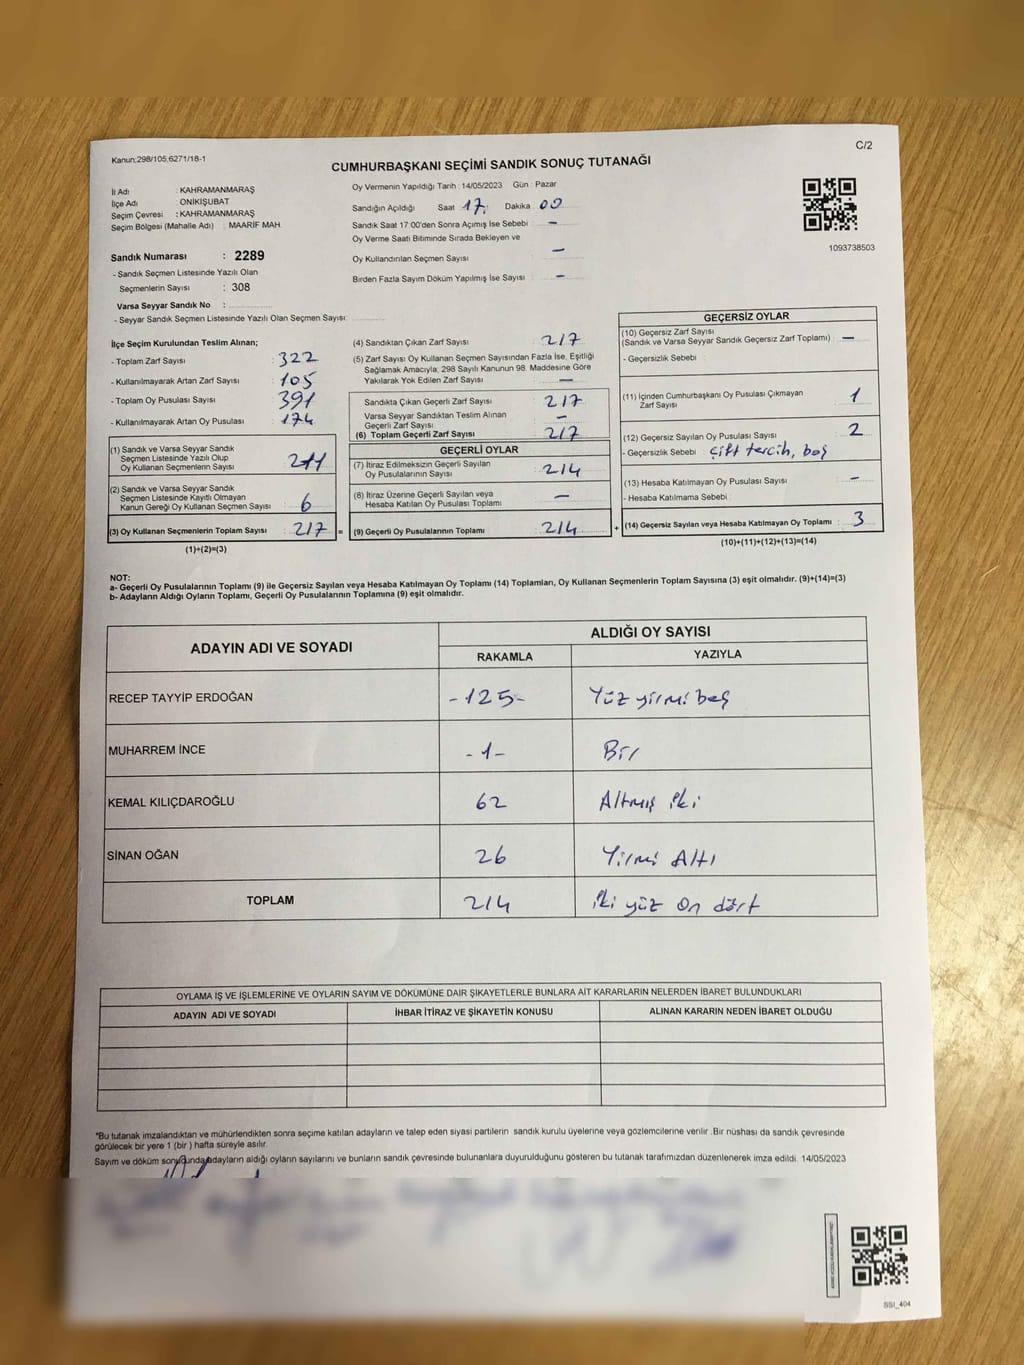 Kanun:298/105,6271/18-1
C/2
CUMHURBAŞKANI SEÇİMİ SANDIK SONUÇ TUTANAĞI
İl Adı : KAHRAMANMARAŞ
İlçe Adı : ONİKİŞUBAT
Seçim Çevresi : KAHRAMANMARAŞ
Seçim Bölgesi (Mahalle Adı) : MAARİF MAH.
Sandık Numarası : 2289
- Sandık Seçmen Listesinde Yazılı Olan
Seçmenlerin Sayısı : 308
Varsa Seyyar Sandık No :
- Seyyar Sandık Seçmen Listesinde Yazılı Olan Seçmen Sayısı:
Oy Vermenin Yapıldığı Tarih : 14/05/2023 Gün : Pazar
Sandığın Açıldığı Saat 17: Dakika 00
Sandık Saat 17:00'den Sonra Açımış İse Sebebi : —
Oy Verme Saati Bitiminde Sırada Bekleyen ve
Oy Kullandırılan Seçmen Sayısı : —
Birden Fazla Sayım Döküm Yapılmış İse Sayısı : —
1093738503
İlçe Seçim Kurulundan Teslim Alınan;
- Toplam Zarf Sayısı : 322
- Kullanılmayarak Artan Zarf Sayısı : 105
- Toplam Oy Pusulası Sayısı : 391
- Kullanılmayarak Artan Oy Pusulası : 174
(1) Sandık ve Varsa Seyyar Sandık
Seçmen Listesinde Yazılı Olup
Oy Kullanan Seçmenlerin Sayısı : 211
(2) Sandık ve Varsa Seyyar Sandık
Seçmen Listesinde Kayıtlı Olmayan
Kanun Gereği Oy Kullanan Seçmen Sayısı : 6
(3) Oy Kullanan Seçmenlerin Toplam Sayısı : 217 =
(1)+(2)=(3)
(4) Sandıktan Çıkan Zarf Sayısı : 217
(5) Zarf Sayısı Oy Kullanan Seçmen Sayısından Fazla İse, Eşitliği
Sağlamak Amacıyla, 298 Sayılı Kanunun 98. Maddesine Göre
Yakılarak Yok Edilen Zarf Sayısı : —
Sandıkta Çıkan Geçerli Zarf Sayısı : 217
Varsa Seyyar Sandıktan Teslim Alınan
Geçerli Zarf Sayısı : —
(6) Toplam Geçerli Zarf Sayısı : 217
GEÇERLİ OYLAR
(7) İtiraz Edilmeksizin Geçerli Sayılan
Oy Pusulalarının Sayısı : 214
(8) İtiraz Üzerine Geçerli Sayılan veya
Hesaba Katılan Oy Pusulası Toplamı : —
(9) Geçerli Oy Pusulalarının Toplamı : 214 +
GEÇERSİZ OYLAR
(10) Geçersiz Zarf Sayısı
(Sandık ve Varsa Seyyar Sandık Geçersiz Zarf Toplamı) : —
- Geçersizlik Sebebi :
(11) İçinden Cumhurbaşkanı Oy Pusulası Çıkmayan
Zarf Sayısı : 1
(12) Geçersiz Sayılan Oy Pusulası Sayısı : 2
- Geçersizlik Sebebi : çift tercih, boş
(13) Hesaba Katılmayan Oy Pusulası Sayısı : —
- Hesaba Katılmama Sebebi :
(14) Geçersiz Sayılan veya Hesaba Katılmayan Oy Toplamı : 3
(10)+(11)+(12)+(13)=(14)
NOT:
a- Geçerli Oy Pusulalarının Toplamı (9) ile Geçersiz Sayılan veya Hesaba Katılmayan Oy Toplamı (14) Toplamları, Oy Kullanan Seçmenlerin Toplam Sayısına (3) eşit olmalıdır. (9)+(14)=(3)
b- Adayların Aldığı Oyların Toplamı, Geçerli Oy Pusulalarının Toplamına (9) eşit olmalıdır.
ADAYIN ADI VE SOYADI
ALDIĞI OY SAYISI
RAKAMLA YAZIYLA
RECEP TAYYİP ERDOĞAN -125- Yüz yirmi beş
MUHARREM İNCE -1- Bir
KEMAL KILIÇDAROĞLU 62 Altmış iki
SİNAN OĞAN 26 Yirmi Altı
TOPLAM 214 iki yüz On dört
OYLAMA İŞ VE İŞLEMLERİNE VE OYLARIN SAYIM VE DÖKÜMÜNE DAİR ŞİKAYETLERLE BUNLARA AİT KARARLARIN NELERDEN İBARET BULUNDUKLARI
ADAYIN ADI VE SOYADI İHBAR İTİRAZ VE ŞİKAYETİN KONUSU ALINAN KARARIN NEDEN İBARET OLDUĞU
*Bu tutanak imzalandıktan ve mühürlendikten sonra seçime katılan adayların ve talep eden siyasi partilerin sandık kurulu üyelerine veya gözlemcilerine verilir .Bir nüshası da sandık çevresinde
görülecek bir yere 1 (bir ) hafta süreyle asılır.
Sayım ve döküm sonunda adayların aldığı oyların sayılarını ve bunların sandık çevresinde bulunanlara duyurulduğunu gösteren bu tutanak tarafımızdan düzenlenerek imza edildi. 14/05/2023
SSI_404